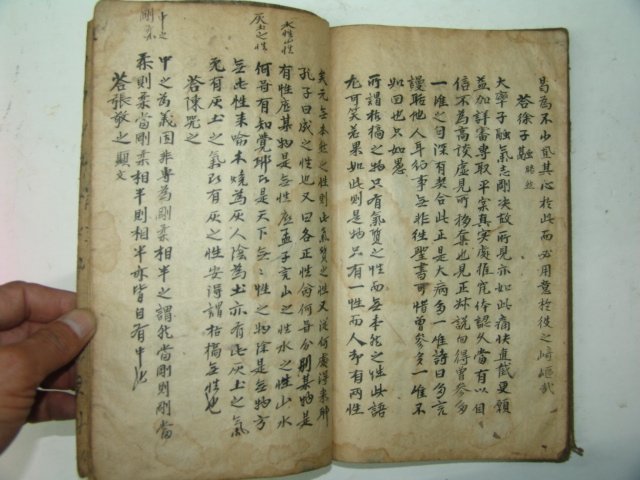 曷為不小寬其心於此而必用意於彼之崎嶇哉
答徐子融
大率子融氣志剛决故所見亦如此痛快直截更願
益加詳審專取平實真實處推究認久當有以自
信不為高談虛見所移奪也見正叔說向得曾參多
一唯之句深有契合此正是大病多一唯詩曰多言
謾聒他人耳紗事無非往聖書可惜曾參多一唯不
如回也只如愚
所謂枯槁之物只有氣質之性而無本然之性此語
尤可笑若果如此則是物只有一性而人却有兩性
水性山性
灰土之性
矣元無本然之性則此氣質之性又從何處得來耶
孔子曰成之性也又曰各正性命何曾分別某物是
有性底某物是無性底孟子言山之性水之性山水
何曾有知覺耶只是天下無〻性之物除是無物方
無此性來喻木燒為灰人陰為土亦有此灰土之氣
既有灰土之氣即有灰土之性安得謂枯槁無性也
答陳器之
中之
剛柔
中之為義固非專為剛柔相半之謂然當剛則剛當
柔則柔當剛柔相半則相半亦皆自有中也
答張敬之 顯父